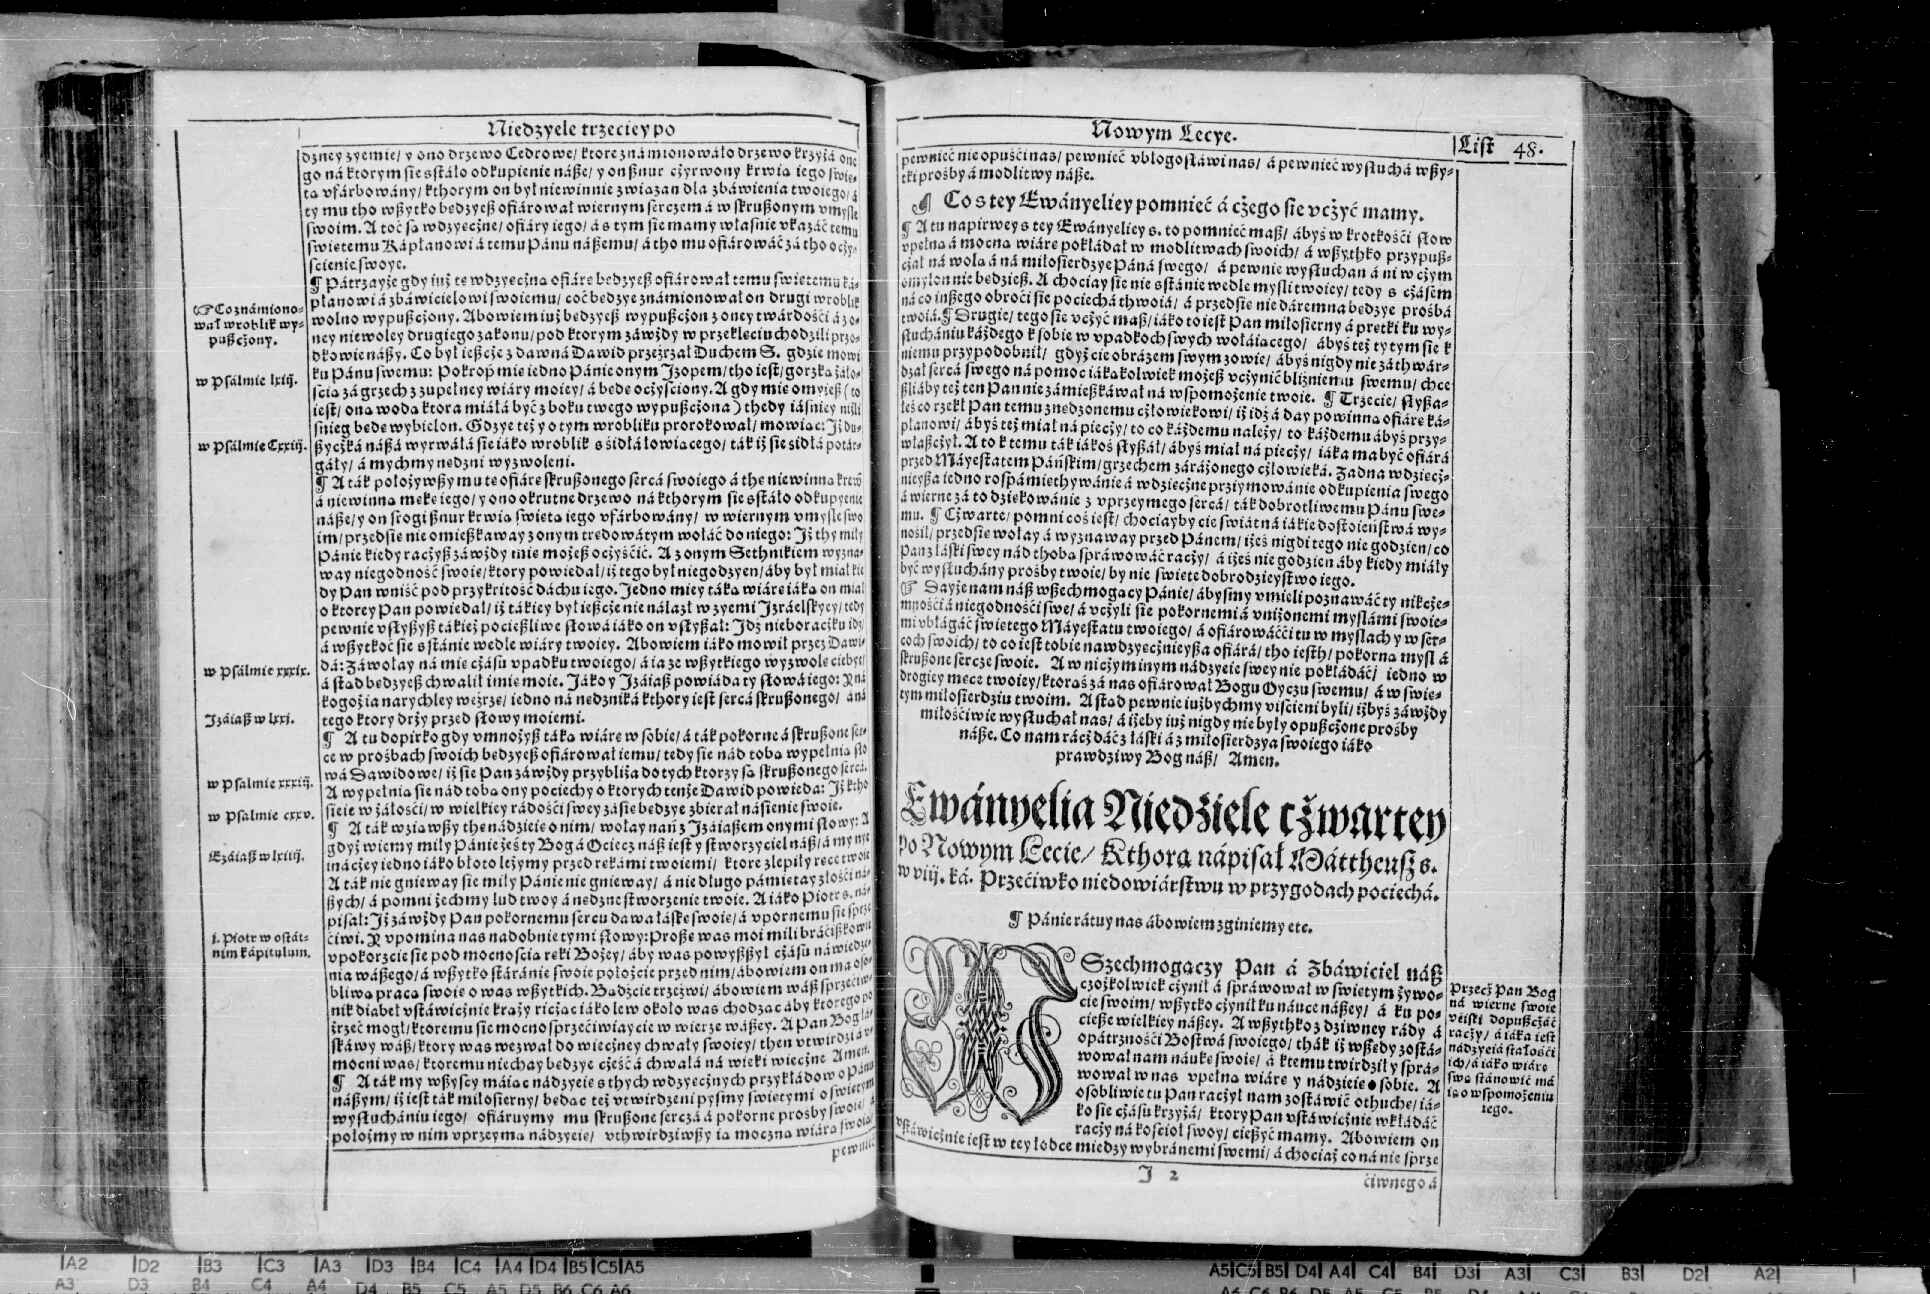 Niedzyele trzeciey po
dzney zyemie/ y ono drzewo Cedrowe/ ktore známionowáło drzewo krzyżá one
go ná ktorym sie sstáło odkupienie násze/ y on sznur cżyrwony krwią iego świe-
tą vfárbowány/ kthorym on był niewinnie związan dla zbáwienia twoiego/ á
ty mu tho wszytko będzyesz ofiárował wiernym sercżem á w skruszonym vmyśle
swoim. A toć są wdzyecżne/ ofiáry iego/ á s tym sie mamy własnie vkázáć temu
świętemu Kápłanowi á temu Pánu nászemu/ á tho mu ofiárowáć zá tho ocży-
ścienie swoye.
¶ Pátrzayże gdy iuż tę wdzyecżną ofiárę będzyesz ofiárował temu świętemu ká-
płanowi á zbáwicielowi swoiemu/ coć będzye známionował on drugi wroblik
wolno wypuszcżony. Abowiem iuż będzyesz wypuszcżon z oney twárdości á zo-
ney niewoley drugiego zakonu/ pod ktorym záwżdy w przeklęciu chodzili przo-
dkowie nászy. Co był ieszcże z dawná Dawid przeźrzał Duchem S. gdzie mowi
ku Pánu swemu: Pokrop mie iedno Pánie onym Jzopem/ tho iest/ gorzką żáło-
ścią zá grzech z zupełney wiáry moiey/ á będę ocżyściony. A gdy mie omyiesz (to
iest/ oná wodá ktora miáłá być z boku twego wypuszcżoná) thedy iáśniey niżli
śnieg będę wybielon. Gdzye też y o tym wrobliku prorokował/ mowiąc: Jż du-
szycżká nászá wyrwáłá sie iáko wroblik s śidłá łowiącego/ ták iż sie śidłá potár-
gáły/ á mychmy nędzni wyzwoleni.
¶ A ták położywszy mu tę ofiárę skruszonego sercá swoiego á thę niewinną krew
á niewinną mękę iego/ y ono okrutne drzewo ná kthorym sie sstáło odkupyenie
násze/ y on srogi sznur krwią świętą iego vfárbowány/ w wiernym vmyśle swo
im/ przedsię nie omieszkaway z onym trędowátym wołáć do niego: Jż thy miły
Pánie kiedy racżysz záwżdy mie możesz ocżyśćić. A z onym Sethnikiem wyzna-
way niegodność swoię/ ktory powiedał/ iż tego był niegodzyen/ áby był miał kie
dy Pan wniść pod przykritość dáchu iego. Jedno miey táką wiárę iáką on miał
o ktorey Pan powiedał/ iż tákiey był ieszcże nie nálazł w zyemi Jzráelskyey/ tedy
pewnie vsłyszysz tákież pocieszliwe słowá iáko on vsłyszał: Jdź nieboracżku idź/
á wszytkoć sie sstánie wedle wiáry twoiey. Abowiem iáko mowił przez Dawi-
dá: Záwołay ná mie cżásu vpadku twoiego/ á ia ze wszytkiego wyzwolę ciebye/
á stąd będzyesz chwalił imię moie. Jáko y Jzáiasz powiáda ty słowá iego: Y ná
kogoż ia narychley weźrzę/ iedno ná nędzniká kthory iest sercá skruszonego/ á ná
tego ktory drży przed słowy moiemi.
¶ A tu dopirko gdy vmnożysz táką wiárę w sobie/ á ták pokorne á skruszone ser-
ce w prośbach swoich będzyesz ofiárował iemu/ tedy sie nád tobą wypełnią sło
wá Dawidowe/ iż sie Pan záwżdy przybliża do tych ktorzy są skruszonego sercá.
A wypełnią sie nád tobą ony pociechy o ktorych tenże Dawid powieda: Jż ktho
sieie w żáłości/ w wielkiey rádości swey zásię będzye zbierał náśienie swoie.
¶ A ták wziąwszy thę nádzieię o nim/ wołay nań z Jzáiaszem onymi słowy: A
gdyż wiemy miły Pánie żeś ty Bog á Ociecz nász iest y stworzyciel nász/ á my nye
inácżey iedno iáko błoto leżymy przed rękámi twoiemi/ ktore zlepiły ręce twoie
A ták nie gnieway sie miły Pánie nie gnieway/ á nie długo pámiętay złości ná-
szych/ á pomni żechmy lud twoy á nędzne stworzenie twoie. A iáko Piotr s. ná-
pisał: Jż záwżdy Pan pokornemu sercu dawa łáskę swoię/ á vpornemu sie sprze
ciwi. Y vpomina nas nadobnie tymi słowy: Proszę was moi mili bráciszkowie
vpokorzcie sie pod mocnością ręki Bożey/ áby was powyszszył cżásu náwiedze-
nia wászego/ á wszytko stáránie swoie położcie przed nim/ ábowiem on ma oso-
bliwą pracą swoię o was wszytkich. Bądźcie trzeźwi/ ábowiem wász sprzeciw-
nik dyabeł vstáwicżnie krąży ricżąc iáko lew około was chodząc áby ktorego po
żrzeć mogł/ ktoremu sie mocno sprzeciwiaycie w wierze wászey. A Pan Bog łá-
skáwy wász/ ktory was wezwał do wiecżney chwały swoiey/ then vtwirdzi á v-
mocni was/ ktoremu niechay będzye cżęść á chwałá ná wieki wiecżne Amen.
¶ A ták my wszyscy máiąc nádzyeię s thych wdzyęcżnych przykłádow o Pánu
nászym/ iż iest ták miłosierny/ będąc też vtwirdzeni pysmy świętymi o świętym
wysłuchániu iego/ ofiáruymy mu skruszone sercżá á pokorne prośby swoie/ á
położmy w nim vprzeymą nádzyeię/ vthwirdziwszy ią mocżną wiárą swoią/
pewnieć
☞ Co známiono-
wał wroblik wy-
puszcżony.
w Psálmie lxiij.
w Psálmie Cxxiij.
w Psálmie xxxix.
Jzáiasz w lxxj.
w Psálmie xxxiij.
w Psálmie cxxv.
Ezáiasz w lxiiij.
j. Piotr w ostát-
nim kápitulum.
Nowym Lecye.
List 48.
pewnieć nie opuści nas/ pewnieć vbłogosłáwi nas/ á pewnieć wysłucha wszy-
tki prośby á modlitwy násze.
¶ Co s tey Ewányeliey pomnieć á cżego sie vcżyć mamy.
¶ A tu napirwey s tey Ewányeliey s. to pomnieć masz/ ábyś w krotkości słow
vpełną á mocną wiárę pokłádał w modlitwach swoich/ á wszythko przypusz-
cżał ná wolą á ná miłosierdzye Páná swego/ á pewnie wysłuchan á ni w cżym
omylon nie będziesz. A chociay sie nie sstánie wedle myśli twoiey/ tedy s cżásem
ná co inszego obroci sie pociechá thwoiá/ á przedsię nie dáremna będzye prośbá
twoiá. ¶ Drugie/ tego sie vcżyć masz/ iáko to iest Pan miłosierny á prętki ku wy-
słuchániu káżdego k sobie w vpadkoch swych wołáiącego/ ábyś też ty tym sie k
niemu przypodobnił/ gdyż cie obrázem swym zowie/ ábyś nigdy nie záthwár-
dzał sercá swego ná pomoc iákąkolwiek możesz vcżynić bliźniemu swemu/ chce
szli áby też ten Pan nie zámieszkawał ná wspomożenie twoie. ¶ Trzecie/ słysza-
łeś co rzekł Pan temu znędzonemu cżłowiekowi/ iż idź á day powinną ofiárę ká-
płanowi/ ábyś też miał ná pieczy/ to co káżdemu należy/ to káżdemu ábyś przy-
właszcżył. A to k temu ták iákoś słyszał/ ábyś miał ná pieczy/ iáka ma być ofiárá
przed Máyestatem Páńskim/ grzechem zárażonego cżłowieká. Żadna wdziecż-
nieysza iedno rospámiethywánie á wdzięcżne przyimowánie odkupienia swego
á wierne zá to dziękowánie z vprzeymego sercá/ ták dobrotliwemu Pánu swe-
mu. ¶ Cżwarte/ pomni coś iest/ chociayby cie świát ná iákie dostoieństwá wy-
nośił/ przedsię wołay á wyznaway przed Pánem/ iżeś nigdi tego nie godzien/ co
Pan z łáski swey nád thobą spráwowáć racży/ á iżeś nie godzien áby kiedy miáły
być wysłuchány prośby twoie/ by nie święte dobrodzieystwo iego.
☞ Dayże nam nász wszechmogący Pánie/ ábyśmy vmieli poznawáć ty nikcże-
mności á niegodności swe/ á vcżyli sie pokornemi á vniżonemi myślámi swoie-
mi vbłagáć świętego Máyestatu twoiego/ á ofiárowáć ći tu w myślach y w ser-
coch swoich/ to co iest tobie nawdzyęcżnieysza ofiárá/ tho iesth/ pokorna myśl á
skruszone sercże swoie. A w nicżym inym nádzyeie swey nie pokłádáć/ iedno w
drogiey męce twoiey/ ktorąś zá nas ofiárował Bogu Oyczu swemu/ á w świę-
tym miłosierdziu twoim. A stąd pewnie iużbychmy viściene byli/ iżbyś záwżdy
miłościwie wysłuchał nas/ á iżeby iuż nigdy nie były opuszcżone prośby
násze. Co nam racż dáć z łáski á z miłosierdzya swoiego iáko
prawdziwy Bog nász/ Amen.
Ewányelia Niedźiele cżwartey
po Nowym Lecie/ Kthora nápisał Máttheusz s.
w viij. ká. Przećiwko niedowiárstwu w przygodach pociechá.
¶ Pánie rátuy nas ábowiem zginiemy etc.
WSzechmogączy Pan á Zbáwiciel nász
cżożkolwiek cżynił á spráwował w świętym żywo-
cie swoim/ wszytko cżynił ku náuce nászey/ á ku po-
ciesze wielkiey nászey. A wszythko z dziwney rády á
opátrzności Bostwá swoiego/ thák iż wszędy zostá-
wował nam náukę swoię/ á k temu twirdził y sprá-
wował w nas vpełną wiárę y nádzieię o sobie. A
osobliwie tu Pan racżył nam zostáwić othuchę/ iá-
ko sie cżásu krzyżá/ ktory Pan vstáwicżnie wkłádáć
racży ná kościoł swoy/ cieszyć mamy. Abowiem on
vstáwicżnie iest w tey łodce miedzy wybránemi swemi/ á chociaż co ná nie sprze
J 2
ćiwnego á
Przecż Pan Bog
ná wierne swoie
vćiski dopuszcżáć
racży/ á iáka iest
nádzyeiá stałości
ich/ á iáko wiárę
swą stánowić má
ią o wspomożeniu
iego.